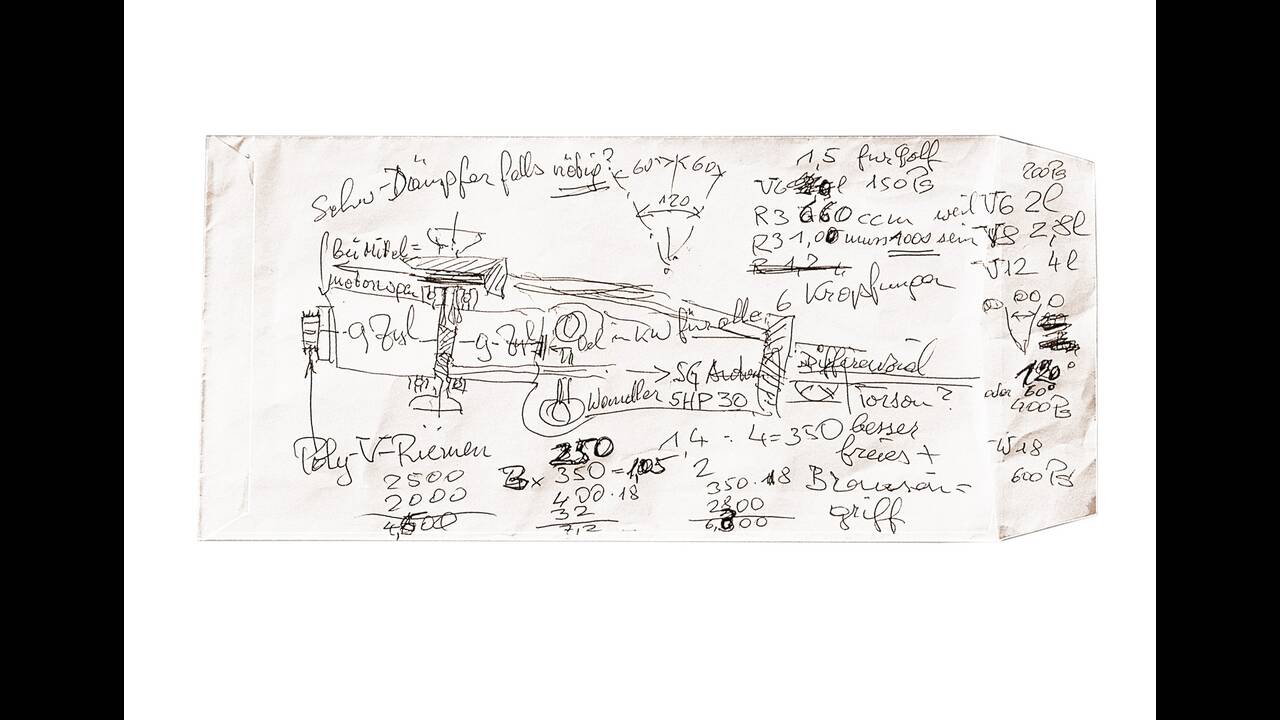 Schw-Dämpfer falls nötig?
60° 60
120
1,5 für Golf
V6 150 PS
R3 660 ccm weil
R3 1,00 muss 1000 sein
6 Kröpfungen
200 PS
V6 2l
V8 2,8l
V12 4l
120°
oder 60°
400 PS
W18
600 PS
bei Mittel=
motorwagen
9 Zyl
9-Zyl
Oel in KW für alle
Wandler
5HP30
→ 5G
Differenzial
Torson?
besser
freies +
Bremsen=
griff
Poly-V-Riemen
2500
2000
4,500
250
350 = 105
400 · 18
32
7,2
1,4 : 4 = 350
2
350 · 18
2800
6,300